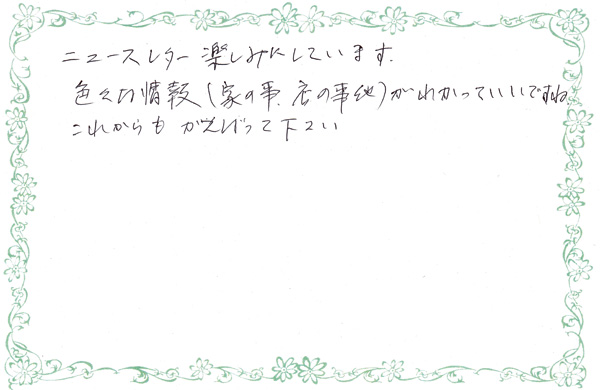 ニュースレター楽しみにしています.
色々な情報(家の事 店の事他)がわかっていいですね
これからも がんばって下さい